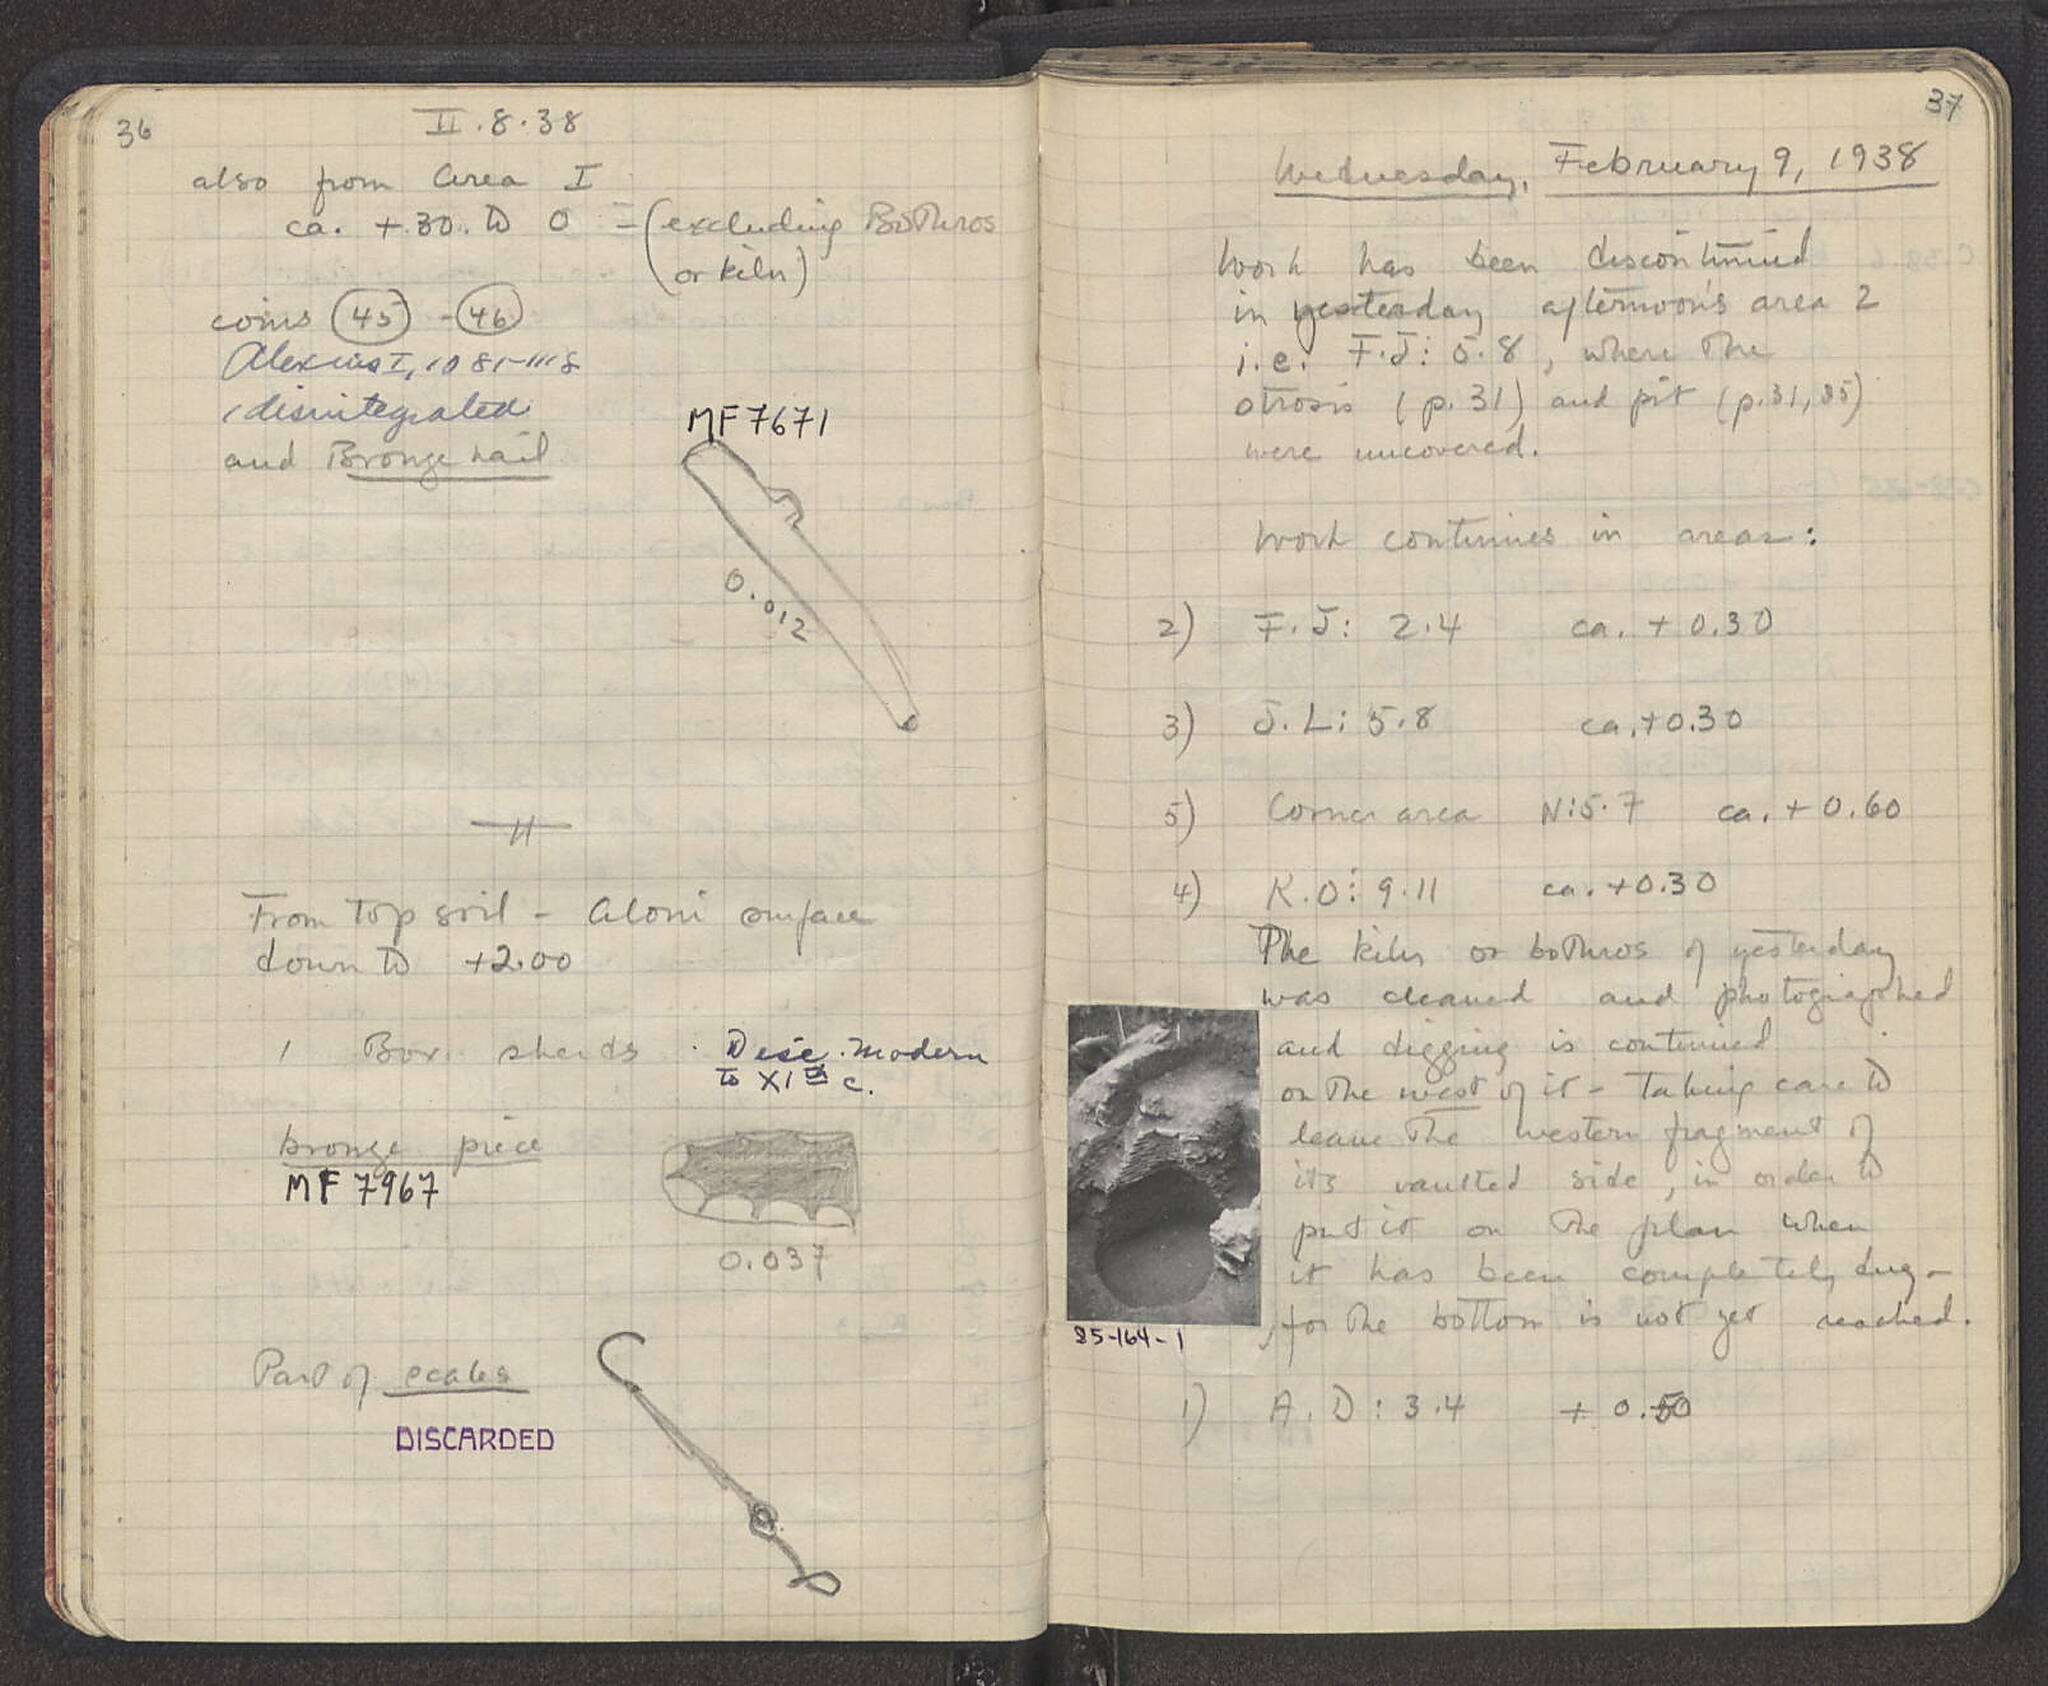 36
II.8.38
also from area I
ca. +.30. to 0 - (excluding Bothros
or kiln)
coins 45 - 46
Alexius I, 1081-1118
disintegrated
and Bronze nail
MF 7671
0.012
From top soil - Aloni surface
down to +2.00
1 Box sherds. Disc. Modern
to XIth c.
bronze piece
MF 7967
0.037
Part of scales
DISCARDED
37
Wednesday, February 9, 1938
Work has been discontinued
in yesterday afternoon's area 2
i.e. F.J: 5.8, where the
strosis (p.31) and pit (p.31, 35)
were uncovered.
Work continues in areas:
2) F.J: 2.4 ca. + 0.30
3) J.L: 5.8 ca. +0.30
5) Corner area N:5.7 ca. + 0.60
4) K.O: 9.11 ca. +0.30
The kiln or bothros of yesterday
was cleaned and photographed
and digging is continued
on the west of it - taking care to
leave the western fragment of
its vaulted side, in order to
put it on the plan when
it has been completely dug -
for the bottom is not yet reached.
85-164-1
1) A.D: 3.4 + 0.50